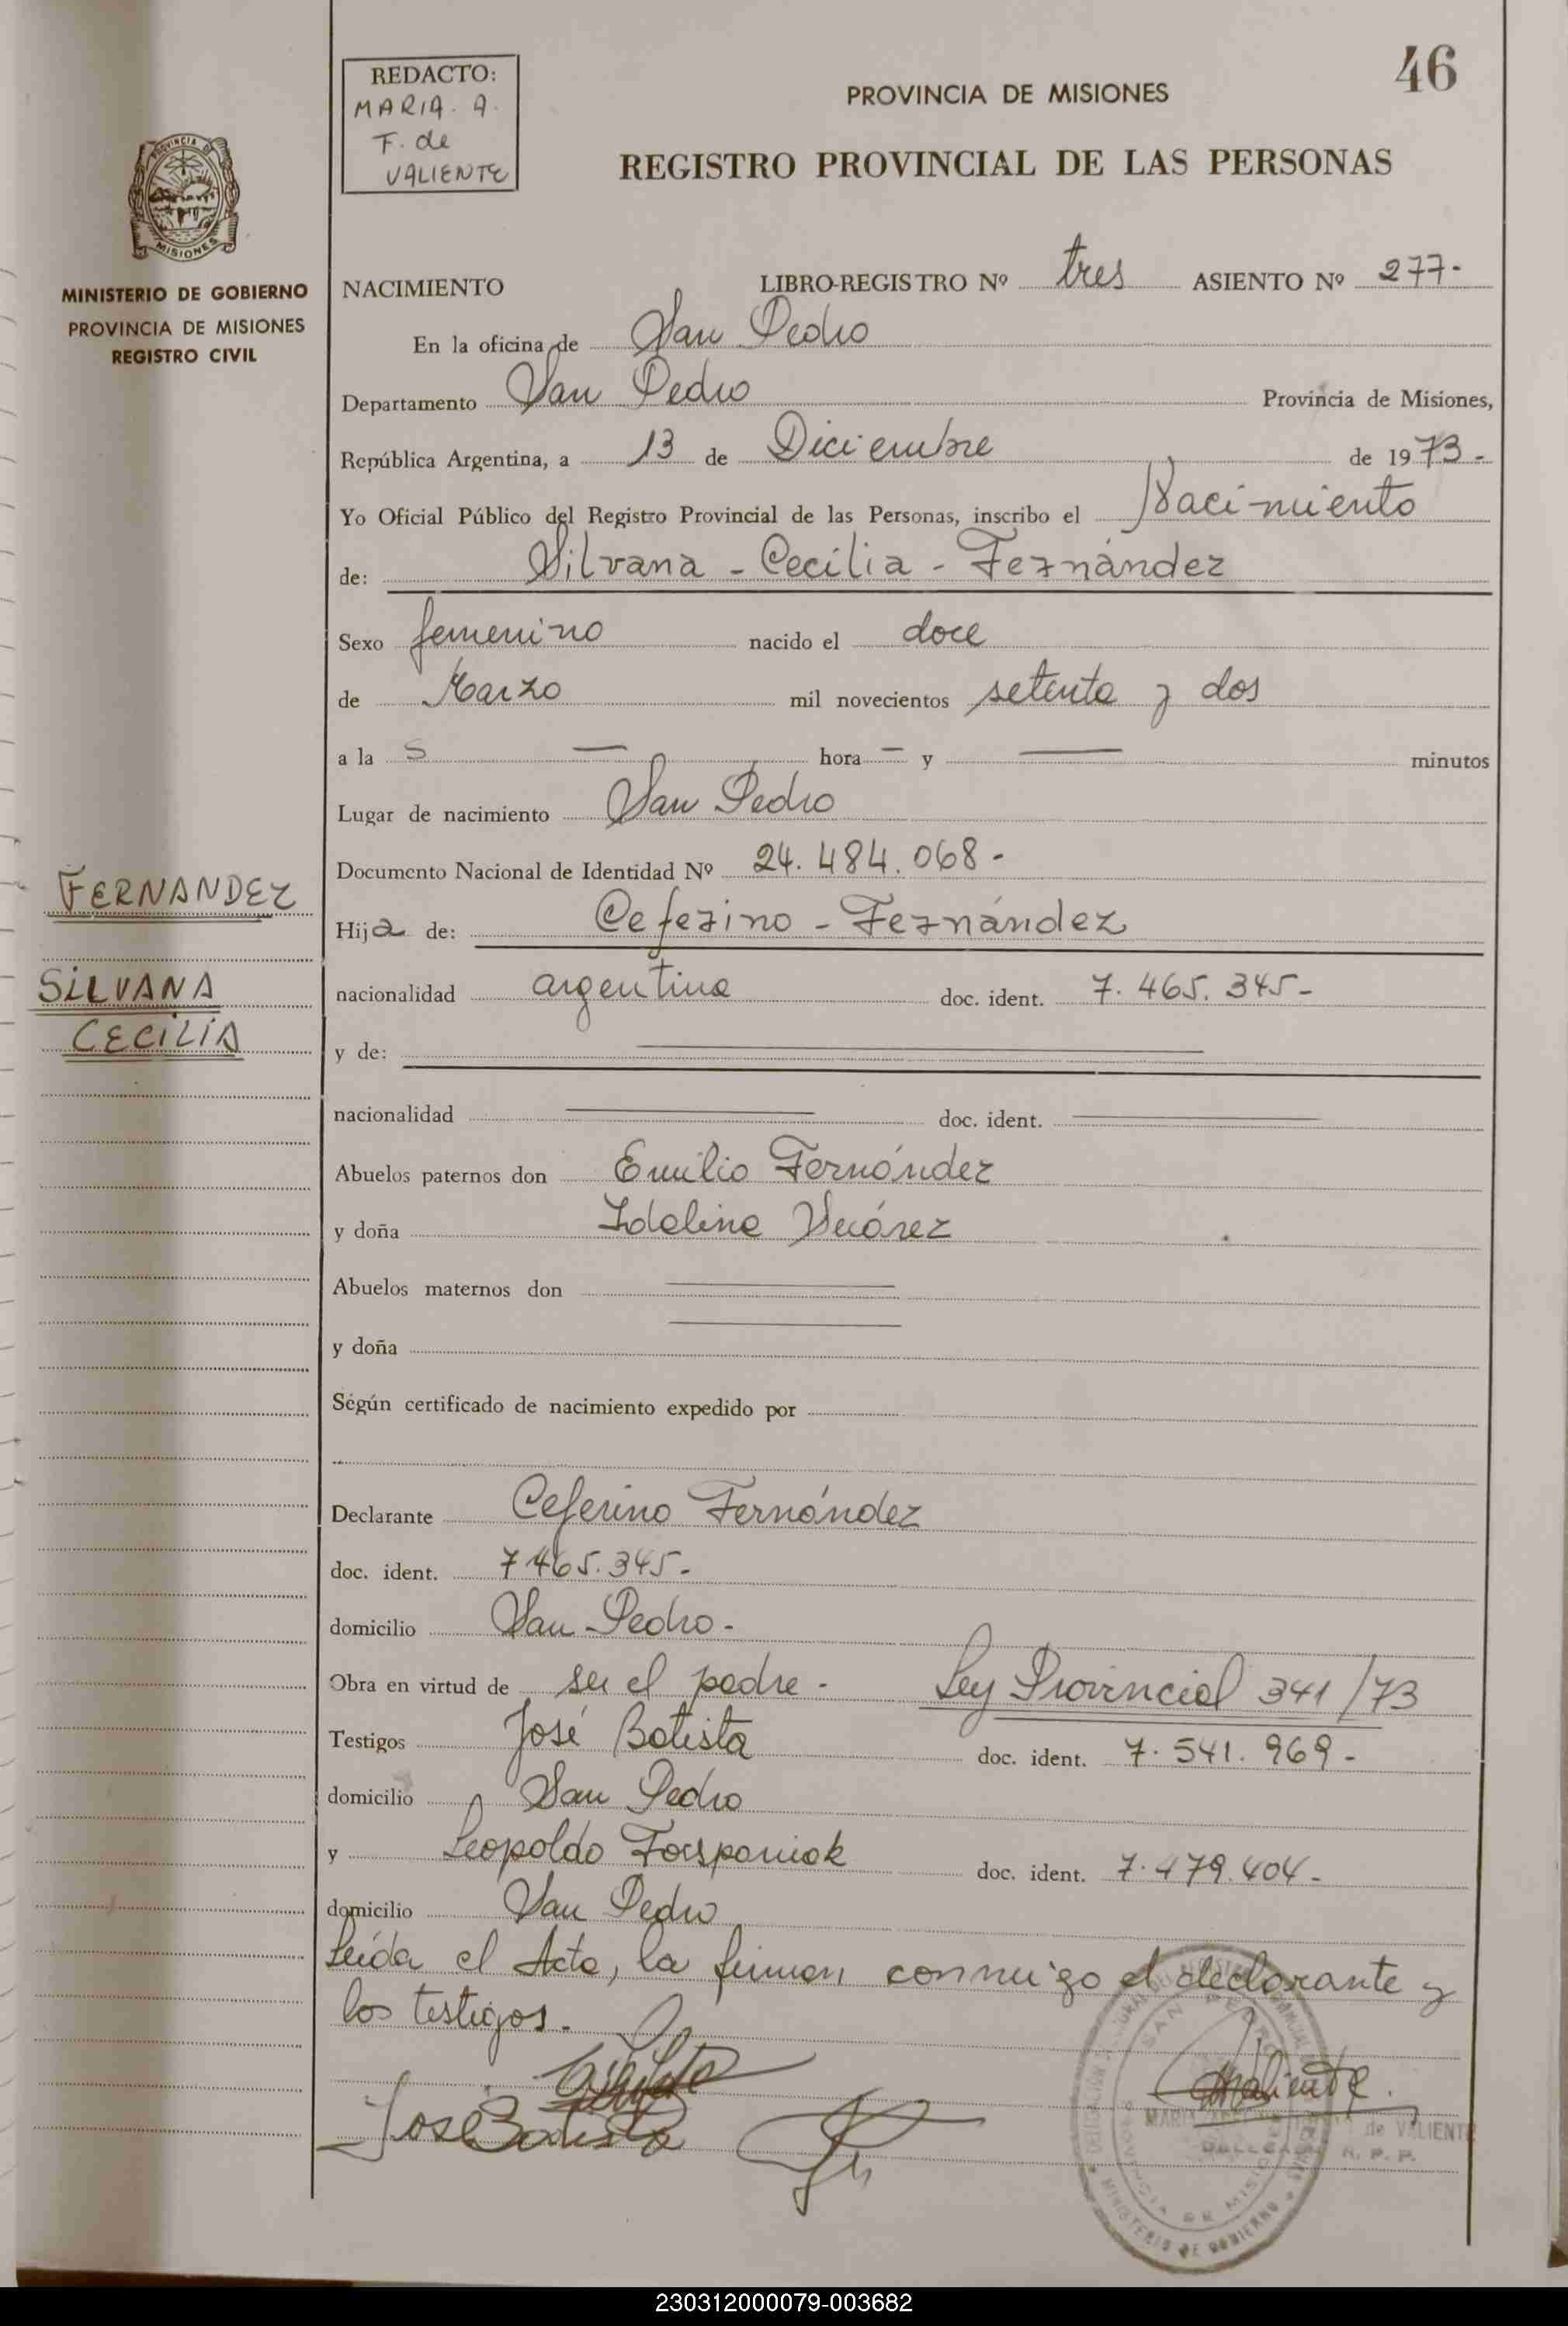 46
REDACTO:
MARIA. A.
F. de
VALIENTE
PROVINCIA DE MISIONES
REGISTRO PROVINCIAL DE LAS PERSONAS
PROVINCIA DE
MISIONES
MINISTERIO DE GOBIERNO
PROVINCIA DE MISIONES
REGISTRO CIVIL
NACIMIENTO LIBRO-REGISTRO Nº tres ASIENTO Nº 277-
En la oficina de San Pedro
Departamento San Pedro Provincia de Misiones,
República Argentina, a 13 de Diciembre de 1973-
Yo Oficial Público del Registro Provincial de las Personas, inscribo el Nacimiento
de: Silvana - Cecilia - Fernández
Sexo femenino nacido el doce
de Marzo mil novecientos setenta y dos
a la s — hora — y — minutos
Lugar de nacimiento San Pedro
Documento Nacional de Identidad Nº 24.484.068-
FERNANDEZ
Hija de: Ceferino - Fernández
SILVANA
CECILIA
nacionalidad argentina doc. ident. 7.465.345-
y de:
nacionalidad doc. ident.
Abuelos paternos don Emilio Fernández
y doña Idalina Suárez
Abuelos maternos don
y doña
Según certificado de nacimiento expedido por
Declarante Ceferino Fernández
doc. ident. 7.465.345-
domicilio San Pedro-
Obra en virtud de ser el padre- Ley Provincial 341/73
Testigos José Batista doc. ident. 7.541.969-
domicilio San Pedro
y Leopoldo doc. ident. 7.479.404-
domicilio San Pedro
Leída el Acta, la firman conmigo el declarante y
los testigos.-
José Batista
Valiente
MARIA de VALIENTE
DELEGADA R. P. P.
SAN PEDRO
PROVINCIA DE MISIONES
MINISTERIO DE GOBIERNO
230312000079-003682